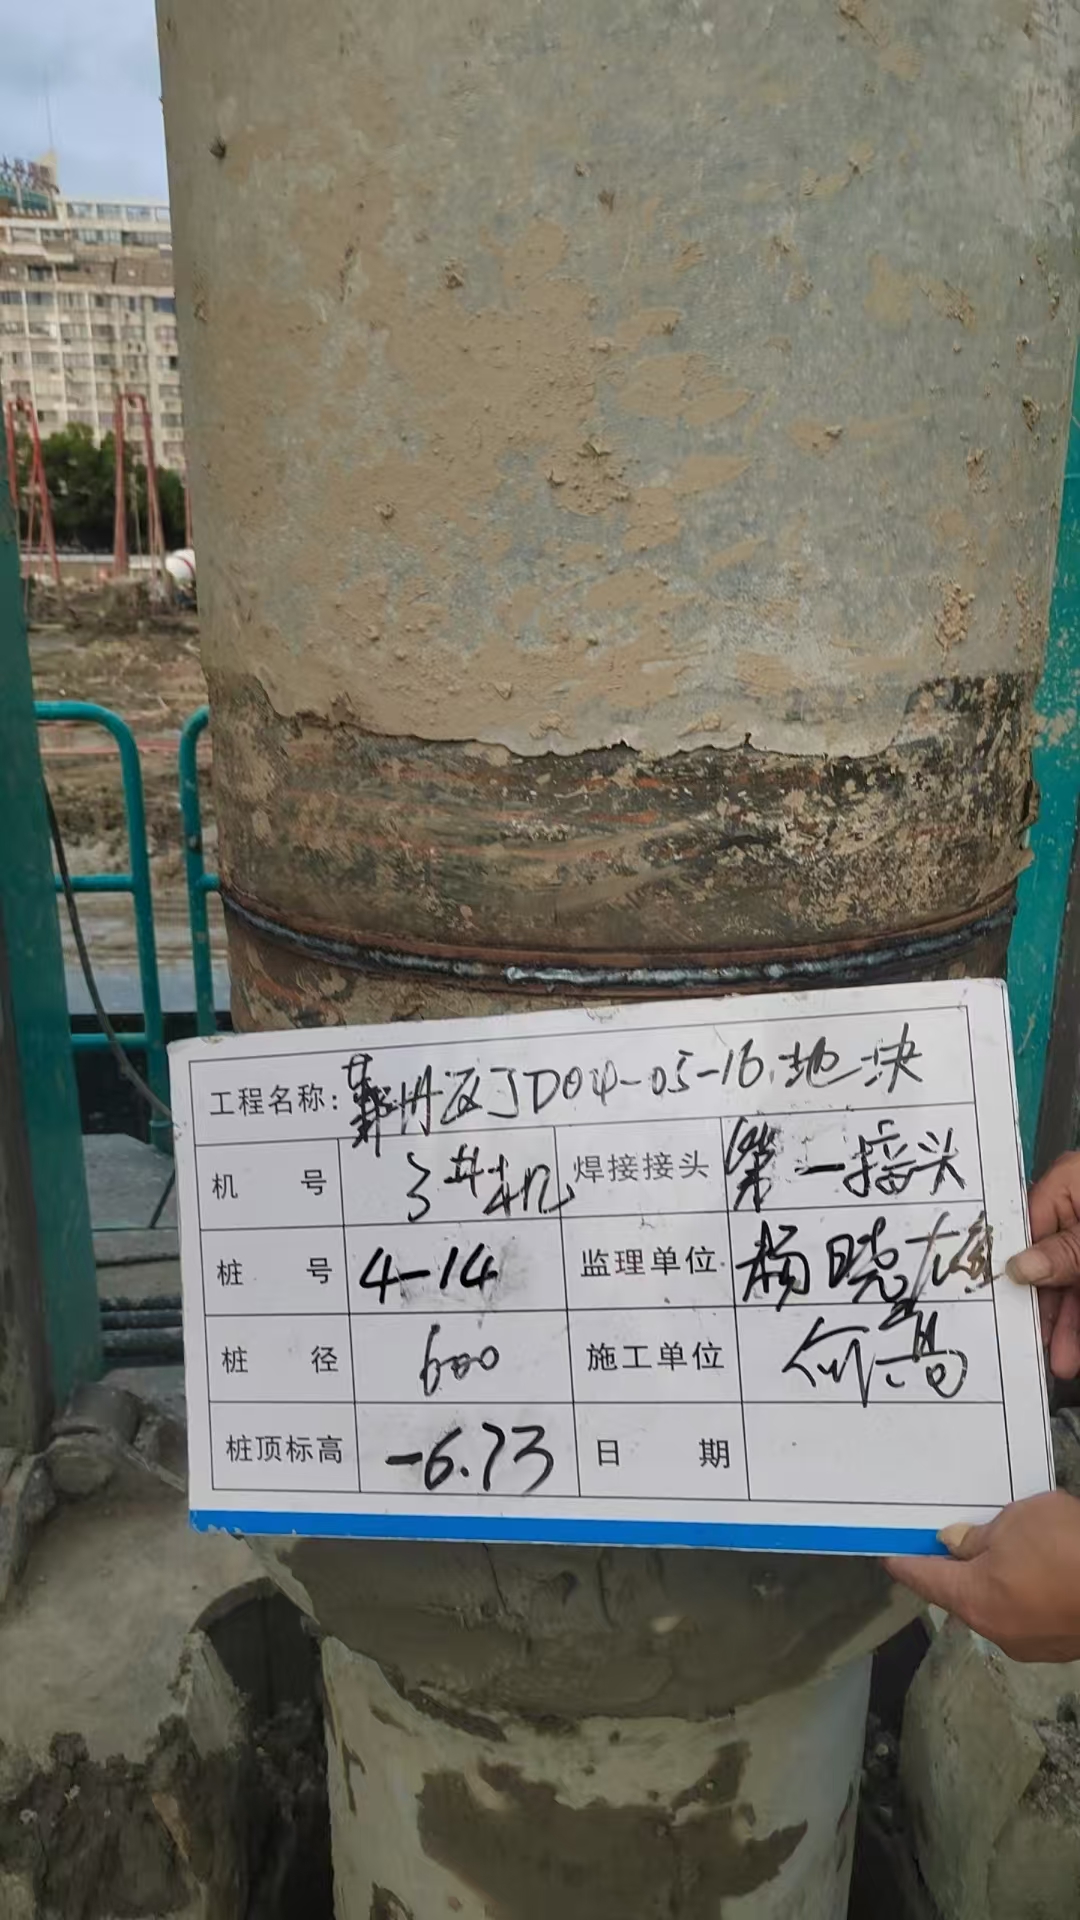 工程名称: 鄞州区JD04-05-16地块
机 号 3#机 焊接接头 第一接头
桩 号 4-14 监理单位 杨晓雄
桩 径 600 施工单位
桩顶标高 -6.73 日 期